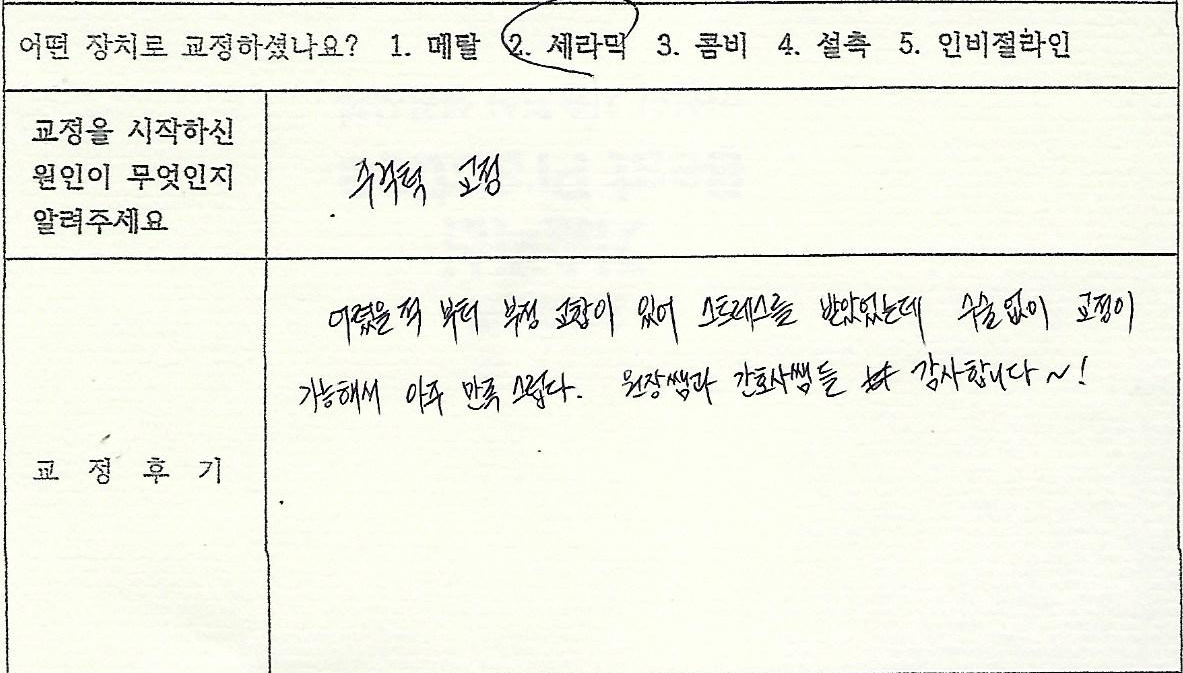 어떤 장치로 교정하셨나요? 1. 메탈 2. 세라믹 3. 콤비 4. 설측 5. 인비절라인
교정을 시작하신
원인이 무엇인지
알려주세요
주걱턱 교정
어렸을적 부터 부정 교합이 있어 스트레스를 받았었는데 수술없이 교정이
가능해서 아주 만족 스럽다. 원장쌤과 간호사쌤들 감사합니다~!
교 정 후 기